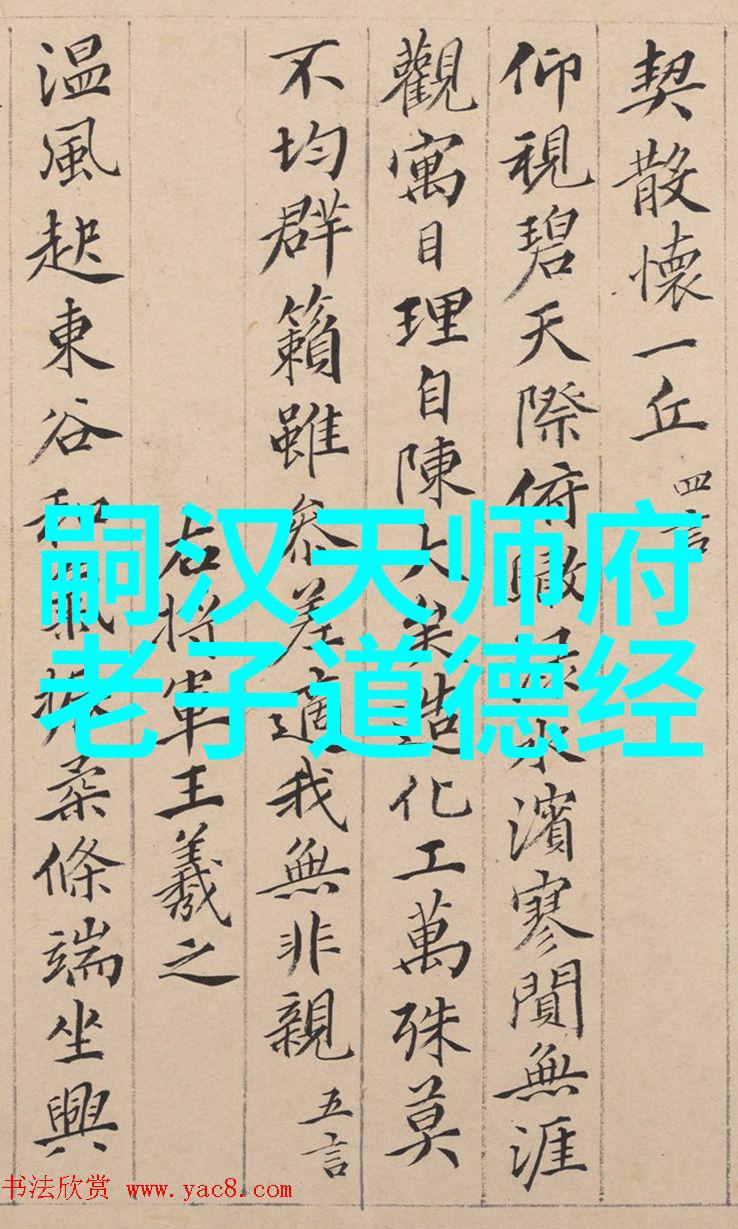 契散懷一丘 四言
仰視碧天際俯瞰水濱寥閴無涯
觀寓目理自陳大矣造化工萬殊莫
不均群籟雖參差適我無非親 五言
右將軍王羲之
温風起東谷和氣振柔條端坐興
嗣汉天师府
老子道德经
书法欣赏 www.yac8.com